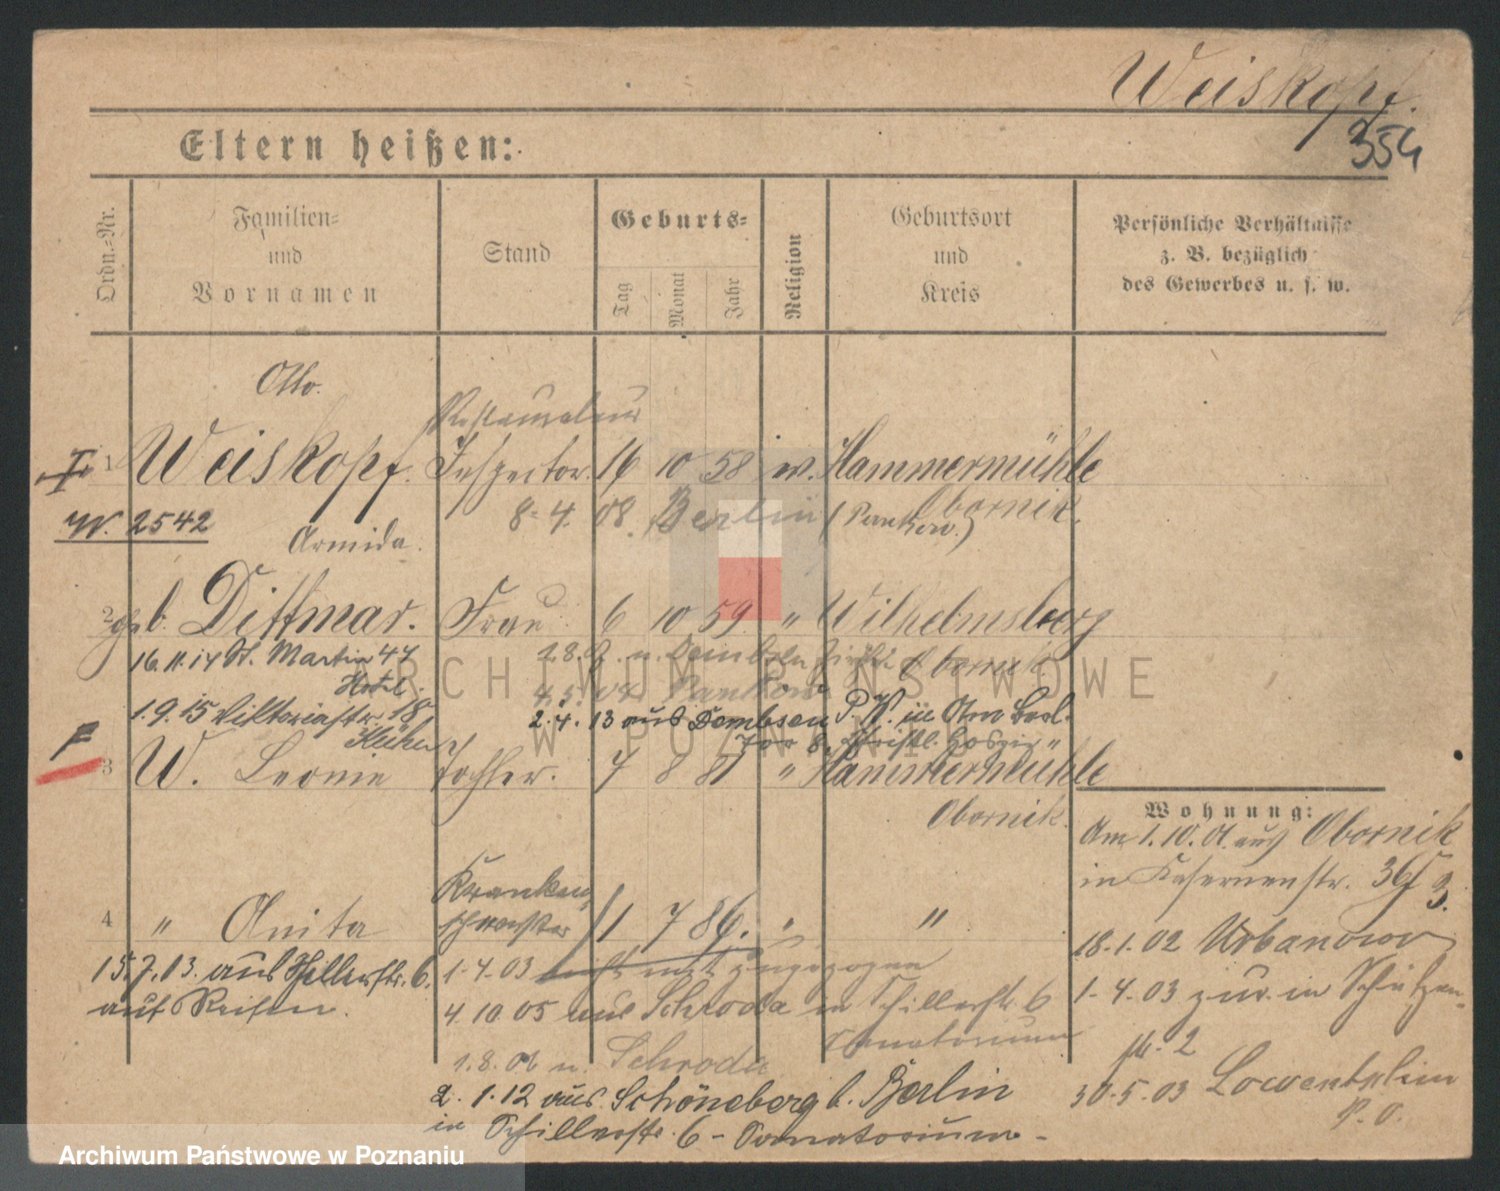 Weiskopf.
354
Eltern heißen:
Ordn.-Nr.
Familien-
und
Vornamen
Stand
Geburts-
Tag
Monat
Jahr
Religion
Geburtsort
und
Kreis
Persönliche Verhältnisse
z. B. bezüglich
des Gewerbes u. s. w.
Otto.
Restaurateur
I
1 Weiskopf. Inspector. 16 10 58 ev. Hammermühle
Obornik.
W. 2542
8.4.08. Berlin (Pankow.)
Armida.
2 geb. Dittmar. Frau 6 10 59 " Wilhelmsberg
Obornik
16.11.14 St. Martin 47
Hotel.
4.5.08 Pankow
1.9.15 Viktoriastr. 18
2.4.13 aus Dembsen P. W. in
F
3 W. Leonie Tochter. 7 8 81 " Hammermühle
Obornik.
Wohnung:
Am 1.10.01. aus Obornik
in Kasernenstr. 36
Kranken
schwester
4 " Anita 11 7 86. " "
15.7.13. aus Schillerstr. 6.
auf Reisen.
1.4.03 nicht mit zugezogen
4.10.05 aus Schroda in Schillerstr. 6
Sanatorium
1.8.06 n. Schroda
2.1.12 aus Schöneberg b. Berlin
in Schillerstr. 6 - Sanatorium -
18.1.02 Urbanowo
1.4.03 zur. in Schützen-
str. 2
30.5.03 Loewenthelim
P. O.
ARCHIWUM PAŃSTWOWE
W POZNANIU
Archiwum Państwowe w Poznaniu